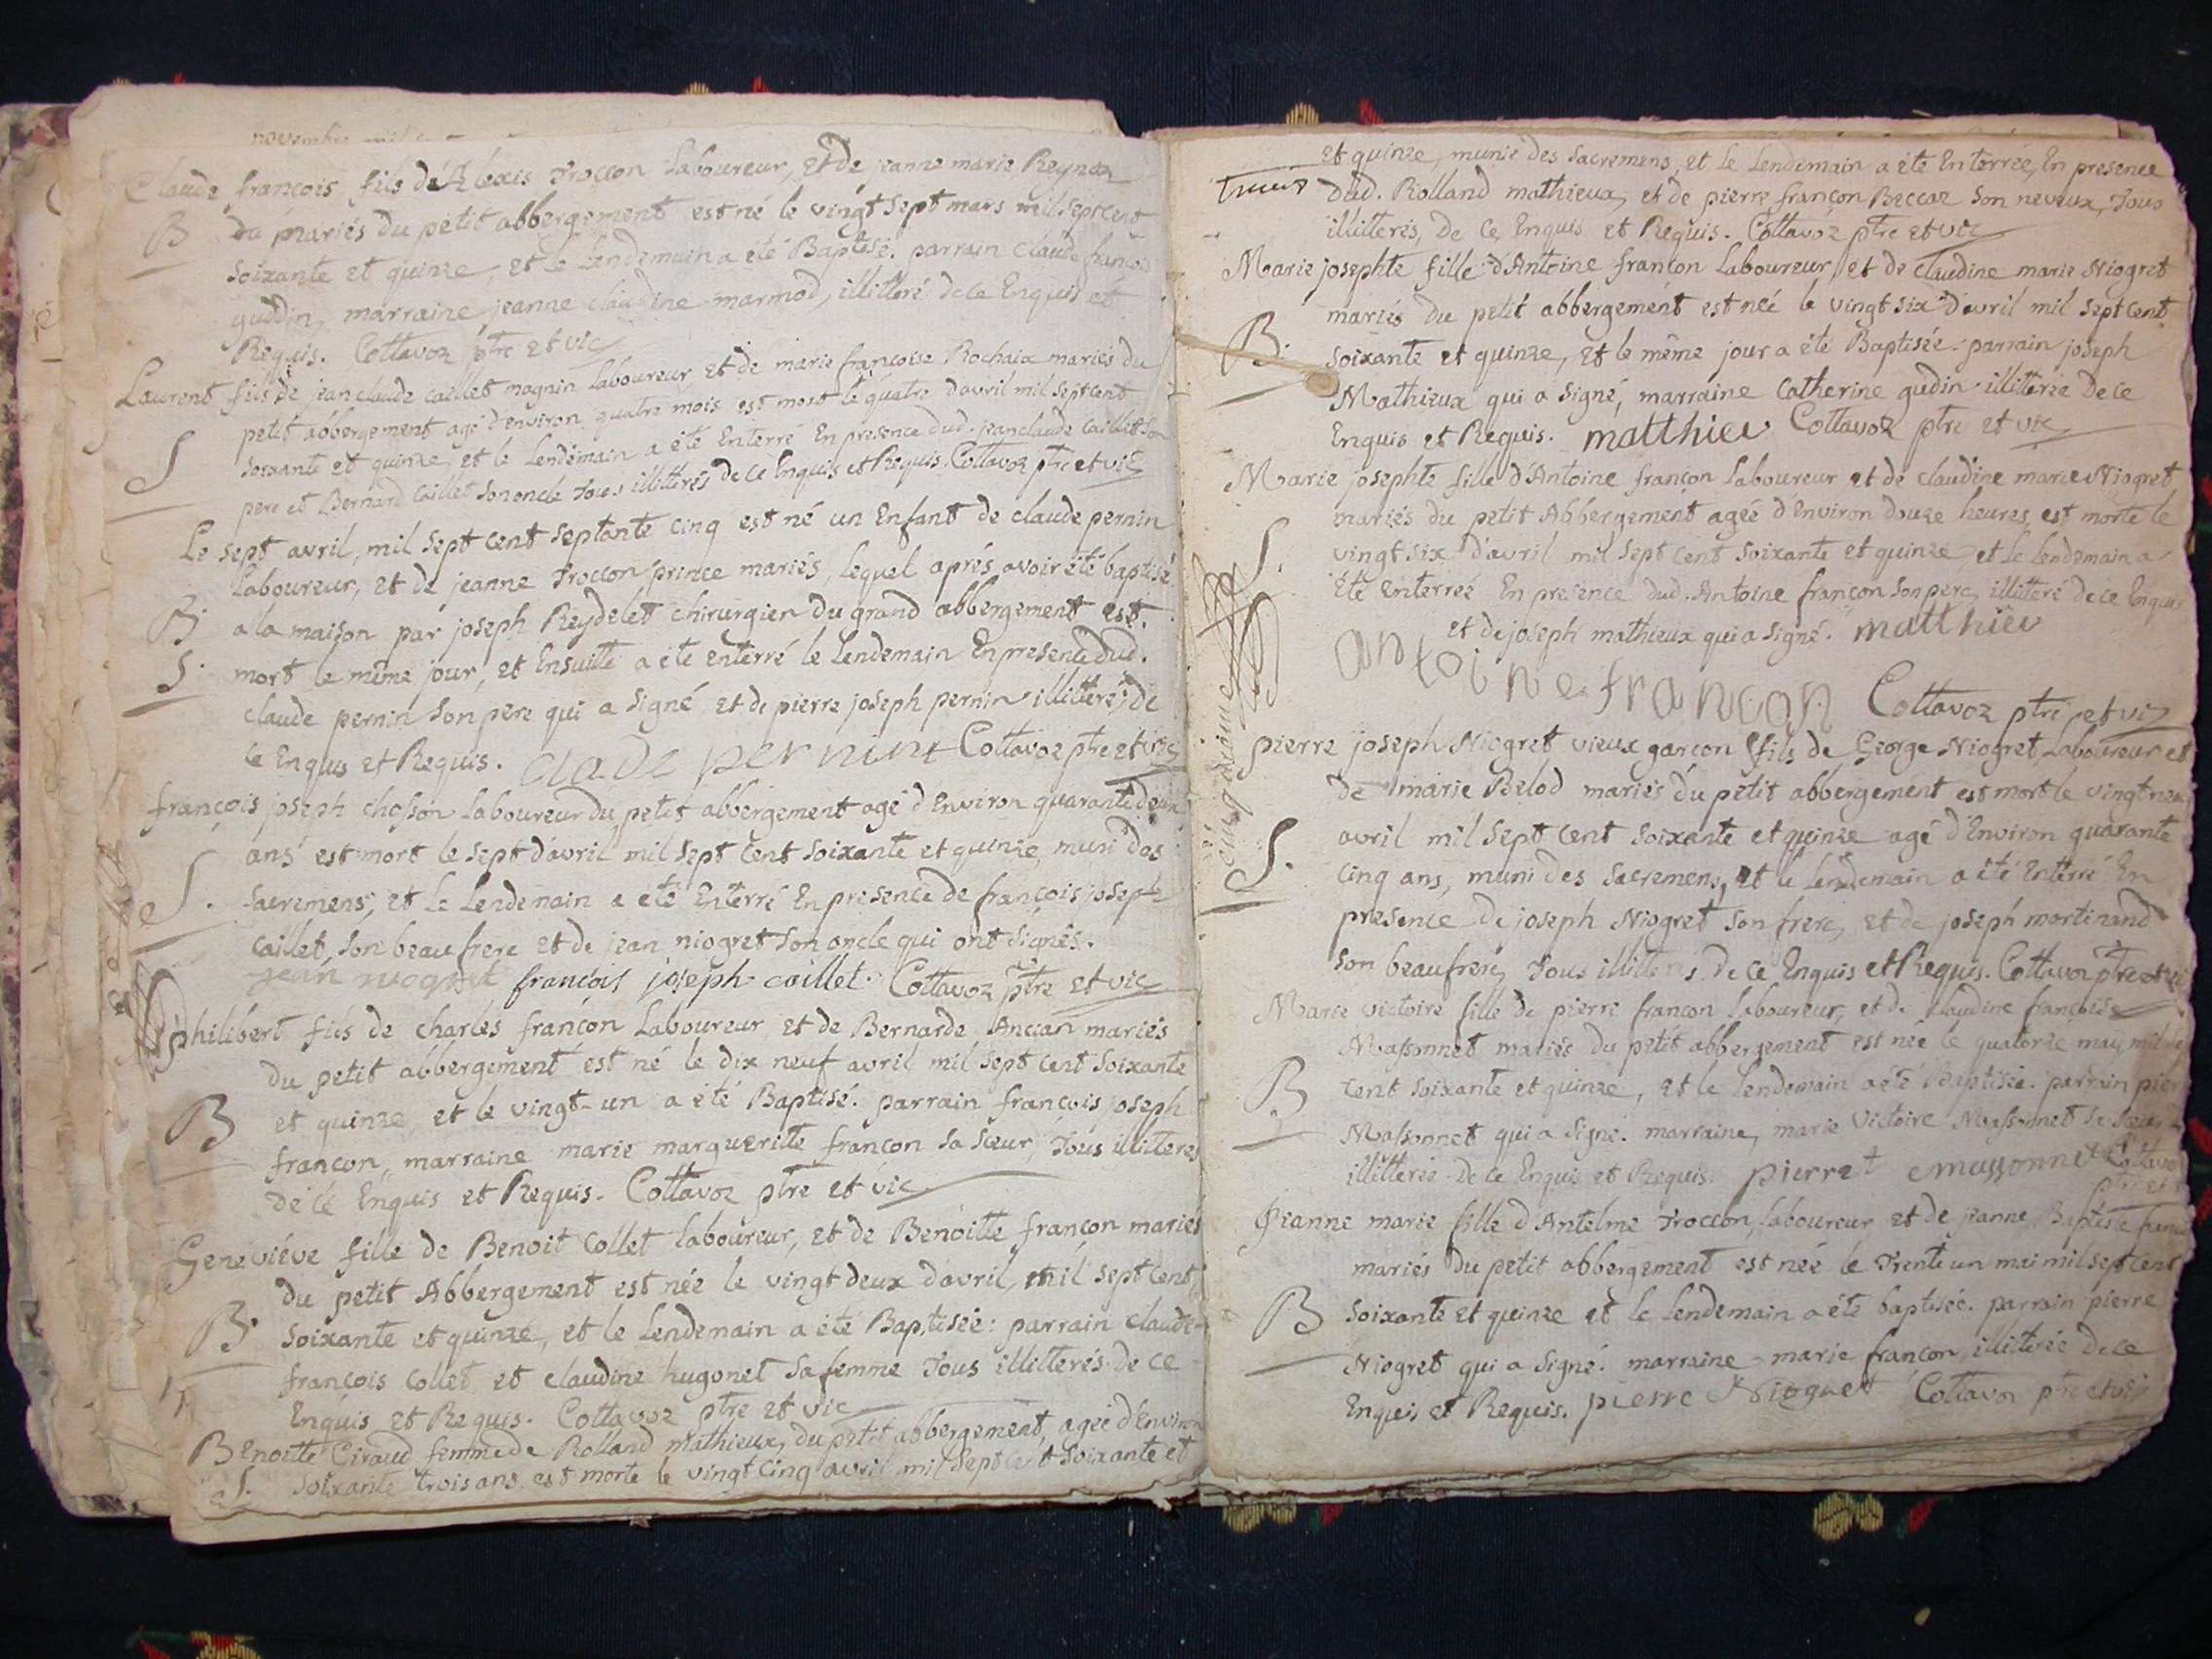 Claude françois fils d'Alexis Troccon Laboureur, et de jeanne marie Reynoz
B
du mariés du petit abbergement est né le vingt sept mars mil sept cent
soixante et quinze, et le Lendemain a été Baptisé. parrain Claude françois
gudin, marraine jeanne claudine marmod, illitteré de ce Enquis et
Requis. Cottavoz ptre et vic
Laurent fils de jean claude caillet magnin Laboureur et de marie françoise Rochaix mariés du
petit abbergement agé d'environ quatre mois est mort le quatre d'avril mil sept cent
S
soixante et quinze, et le Lendemain a été Enterré En presence dud. jean claude Caillet son
pere et Bernard Caillet son oncle tous illitterés de ce Enquis et Requis. Cottavoz ptre et vic
Le sept avril, mil sept cent septante cinq est né un Enfant de claude pernin
Laboureur, et de jeanne Troccon prince mariés, lequel aprés avoir été baptisé
B.
a la maison par joseph Reydelet chirurgien du grand abbergement est
S.
mort le même jour, et Ensuitte a été enterré le Lendemain En presence dud.
claude pernin son pere qui a signé et de pierre joseph pernin illitteré, de
ce Enquis et Requis. clade pernin Cottavoz ptre et vic
françois joseph chosson Laboureur du petit abbergement agé d'Environ quarante deux
ans est mort le sept d'avril mil sept cent soixante et quinze, muni des
S.
sacremens, et le Lendemain a été Enterré En presence de françois joseph
Caillet son beau frere et de jean niogret son oncle qui ont signés.
jean niogret françois joseph caillet. Cottavoz ptre et vic
Philibert fils de charles françon Laboureur et de Bernarde Ancian mariés
du petit abbergement est né le dix neuf avril mil sept cent soixante
B
et quinze, et le vingt-un a été Baptisé. parrain françois joseph
françon, marraine marie margueritte françon sa sœur, Tous illitterés
de ce Enquis et Requis. Cottavoz ptre et vic
Geneviéve fille de Benoit Collet laboureur, et de Benoitte françon mariés
du petit Abbergement est née le vingt deux d'avril, mil sept cent
B.
soixante et quinze, et le Lendemain a été Baptisée: parrain claude
françois Collet, et claudine hugonet sa femme Tous illitterés de ce
Enquis et Requis. Cottavoz ptre et vic
Benoitte Ciraud femme de Rolland mathieux, du petit abbergement, agée d'Environ
S.
soixante trois ans, est morte le vingt cinq avril, mil sept cent soixante et
et quinze, munie des sacremens, et Le Lendemain a été Enterrée, En presence
dud. Rolland mathieux, et de pierre françon Beccaz son neveux, Tous
illitterés, de Ce Enquis et Requis. Cottavoz ptre et vic
Marie josephte fille d'Antoine françon Laboureur, et de claudine marie Niogret
mariés du petit abbergement est née le vingt six d'avril mil sept cent
B.
soixante et quinze, et le même jour a été Baptisée. parrain joseph
Mathieux qui a signé, marraine Catherine gudin illiterée de ce
Enquis et Requis. matthieu Cottavoz ptre et vic
Marie josephte fille d'Antoine françon Laboureur et de claudine marie Niogret
mariés du petit Abbergement agée d'Environ douze heures, est morte le
S.
vingt six d'avril mil sept cent soixante et quinze, et Le lendemain a
été Enterrée En presence dud. Antoine françon son pere, illitteré de ce Enquis
et de joseph mathieux qui a signé. matthieu
antoine francon Cottavoz ptre et vic
pierre joseph Niogret vieux garçon fils de George Niogret Laboureur et
de marie Belod mariés du petit abbergement est mort le vingt neuf
S.
avril mil sept cent soixante et quinze agé d'Environ quarante
cinq ans, muni des sacremens, et le lendemain a été Enterré En
presence de joseph Niogret son frere, et de joseph martinand
son beaufrere, Tous illitterés de ce Enquis et Requis. Cottavoz ptre et vic
Marie victoire fille de pierre françon Laboureur, et de claudine françoise
Massonnet mariés du petit abbergement est née le quatorze may, mil sept
B
cent soixante et quinze, et le lendemain a été Baptisée. parrain pierre
Massonnet qui a signé. marraine, marie victoire Massonnet sa sœur
illitterée de ce Enquis et Requis. pierre massonnet Cottavoz
ptre et
Jeanne marie fille d'Antelme Troccon, laboureur et de jeanne Baptiste françon
mariés du petit abbergement est née le Trente un mai mil sept cent
B
soixante et quinze et le lendemain a été baptisée. parrain pierre
Niogret qui a signé. marraine marie françon, illiterée de ce
Enquis et Requis. pierre Niogret Cottavoz ptre et vic